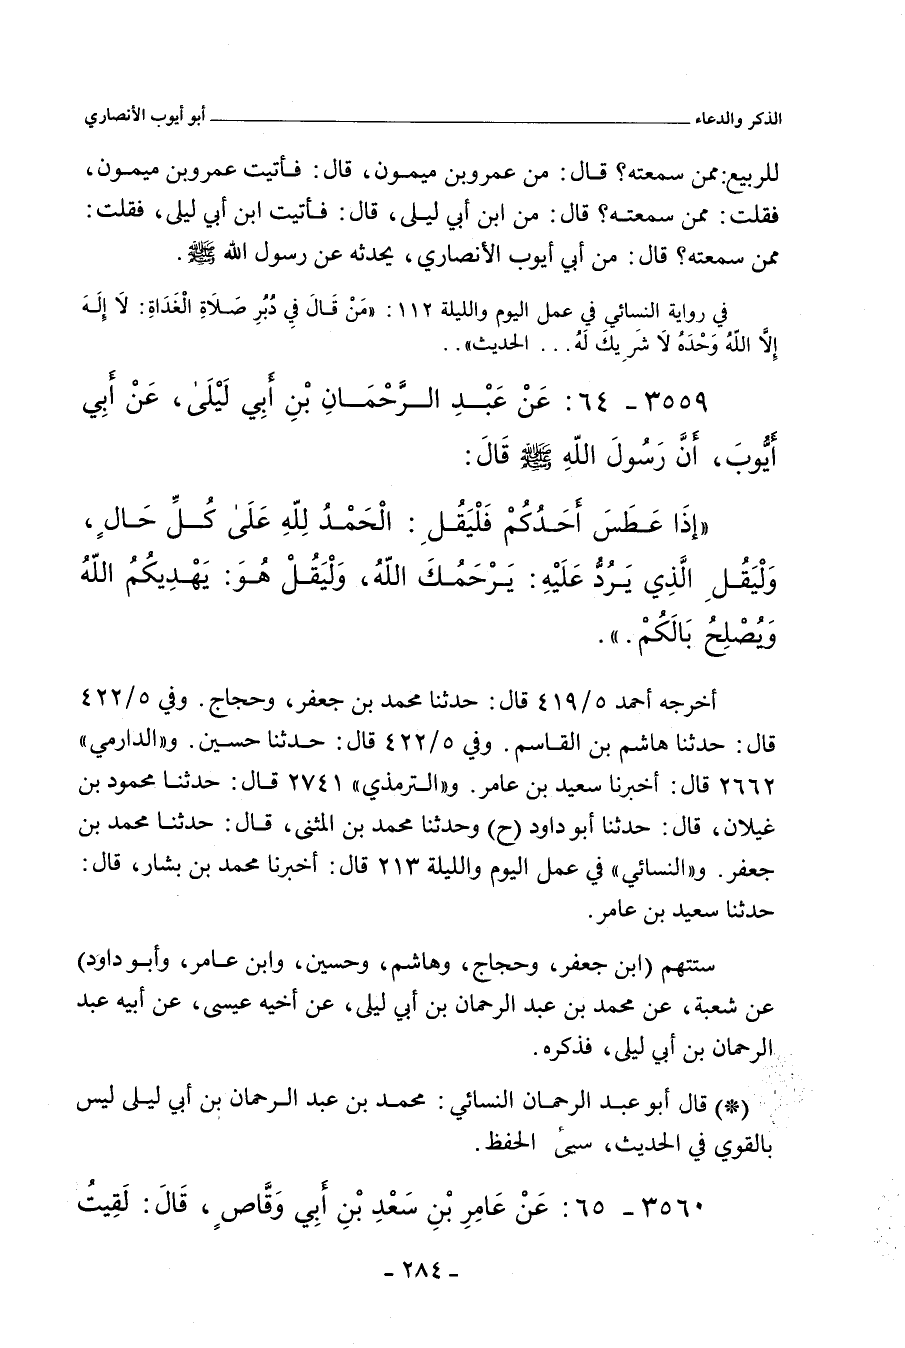 الذكر والدعاء ــــــــــــــــــــــــــــــــــــــــ أبو أيوب الأنصاري
للربيع: ممن سمعته؟ قال: من عمرو بن ميمون، قال: فأتيت عمرو بن ميمون،
فقلت: ممن سمعته؟ قال: من ابن أبي ليلى، قال: فأتيت ابن أبي ليلى، فقلت:
ممن سمعته؟ قال: من أبي أيوب الأنصاري، يحدثه عن رسول الله ﷺ.
في رواية النسائي في عمل اليوم والليلة ١١٢: «مَنْ قَالَ فِي دُبُرِ صَلَاةِ الْغَدَاةِ: لَا إِلَهَ
إِلَّا اللَّهُ وَحْدَهُ لَا شَرِيكَ لَهُ... الحديث»..
٣٥٥٩ - ٦٤: عَنْ عَبْدِ الرَّحْمَانِ بْنِ أَبِي لَيْلَىٰ، عَنْ أَبِي
أَيُّوبَ، أَنَّ رَسُولَ اللَّهِ ﷺ قَالَ:
«إِذَا عَطَسَ أَحَدُكُمْ فَلْيَقُلِ: الْحَمْدُ لِلَّهِ عَلَىٰ كُلِّ حَالٍ،
وَلْيَقُلِ الَّذِي يَرُدُّ عَلَيْهِ: يَرْحَمُكَ اللَّهُ، وَلْيَقُلْ هُوَ: يَهْدِيكُمُ اللَّهُ
وَيُصْلِحُ بَالَكُمْ.».
أخرجه أحمد ٤١٩/٥ قال: حدثنا محمد بن جعفر، وحجاج. وفي ٤٢٢/٥
قال: حدثنا هاشم بن القاسم. وفي ٤٢٢/٥ قال: حدثنا حسين. و«الدارمي»
٢٦٦٢ قال: أخبرنا سعيد بن عامر. و«الترمذي» ٢٧٤١ قال: حدثنا محمود بن
غيلان، قال: حدثنا أبو داود (ح) وحدثنا محمد بن المثنى، قال: حدثنا محمد بن
جعفر. و«النسائي» في عمل اليوم والليلة ٢١٣ قال: أخبرنا محمد بن بشار، قال:
حدثنا سعيد بن عامر.
ستتهم (ابن جعفر، وحجاج، وهاشم، وحسين، وابن عامر، وأبو داود)
عن شعبة، عن محمد بن عبد الرحمان بن أبي ليلى، عن أخيه عيسى، عن أبيه عبد
الرحمان بن أبي ليلى، فذكره.
(*) قال أبو عبد الرحمان النسائي: محمد بن عبد الرحمان بن أبي ليلى ليس
بالقوي في الحديث، سيئ الحفظ.
٣٥٦٠ - ٦٥: عَنْ عَامِرِ بْنِ سَعْدِ بْنِ أَبِي وَقَّاصٍ، قَالَ: لَقِيتُ
- ٢٨٤ -